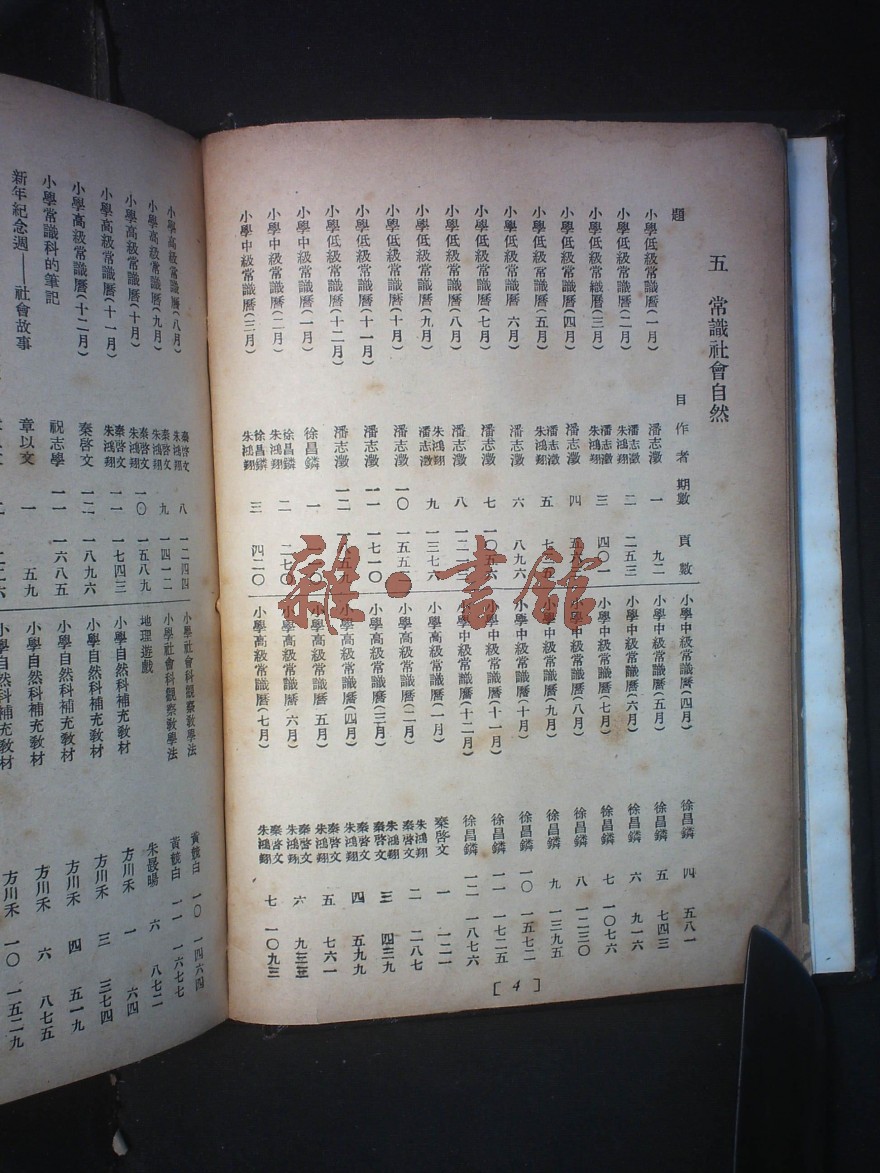 五　常識社會自然
題　目　作者　期數　頁數
小學低級常識曆(一月)　潘志澂　一　九二
小學低級常識曆(二月)　潘志澂 朱鴻翔　二　二五三
小學低級常織曆(三月)　潘志澂 朱鴻翔　三　四〇一
小學低級常識曆(四月)　潘志澂　四
小學低級常識曆(五月)　潘志澂 朱鴻翔　五
小學低級常識曆　六月)　潘志澂　六　八九六
小學低級常識曆(七月)　潘志澂　七　一〇五六
小學低級常識曆(八月)　潘志澂　八
小學低級常識曆(九月)　朱鴻翔 潘志澂　九　一三七六
小學低級常識曆(十月)　潘志澂　一〇
小學低級常識曆(十一月)　潘志澂　一一　一七一〇
小學低級常識曆(十二月)　潘志澂　一二
小學中級常識曆(一月)　徐昌鏻　一
小學中級常識曆(二月)　徐昌鏻 朱鴻翔　二　二七〇
小學中級常識曆(三月)　徐昌鏻 朱鴻翔　三　四二〇
小學中級常識曆(四月)　徐昌鏻　四　五八一
小學中級常識曆(五月)　徐昌鏻　五　七四三
小學中級常識曆(六月)　徐昌鏻　六　九一六
小學中級常識曆(七月)　徐昌鏻　七　一〇七六
小學中級常識曆(八月)　徐昌鏻　八　一二三〇
小學中級常識曆(九月)　徐昌鏻　九　一三九五
小學中級常識曆(十月)　徐昌鏻　一〇　一五七二
小學中級常識曆(十一月)　徐昌鏻　一一　一七二五
小學中級常識曆(十二月)　徐昌鏻　一二　一八七六
小學高級常識曆(一月)　秦啓文　一　一二一
小學高級常識曆(二月)　朱鴻翔 秦啓文　二　二八七
小學高級常識曆(三月)　朱鴻翔 秦啓文　三　四三九
小學高級常識曆(四月)　秦啓文 朱鴻翔　四　五九九
小學高級常識曆　五月)　秦啓文 朱鴻翔　五　七六一
小學高級常識曆　六月)　秦啓文 朱鴻翔　六　九三三
小學高級常識曆(七月)　秦啓文 朱鴻翔　七　一〇九三
[ 4 ]
小學高級常識曆(八月)　秦啓文 朱鴻翔　八　一二四四
小學高級常識曆(九月)　秦啓文 朱鴻翔　九　一四一二
小學高級常識曆(十月)　秦啓文 朱鴻翔　一〇　一五八九
小學高級常識曆(十一月)　秦啓文 朱鴻翔　一一　一七四三
小學高級常識曆(十二月)　秦啓文　一二　一八九六
小學常識科的筆記　祝志學　一一　一六八五
新年紀念週——社會故事　章以文　一　五九
小學社會科觀察教學法　黃競白　一〇　一四六四
小學社會科觀察教學法　黃競白　一一　一六七七
地理遊戲　朱晸暘　六　八七二
小學自然科補充教材　方川禾　一　六四
小學自然科補充教材　方川禾　三　三七四
小學自然科補充教材　方川禾　四　五一九
小學自然科補充教材　方川禾　六　八七五
小學自然科補充教材　方川禾　一〇　一五二九
雜·書館